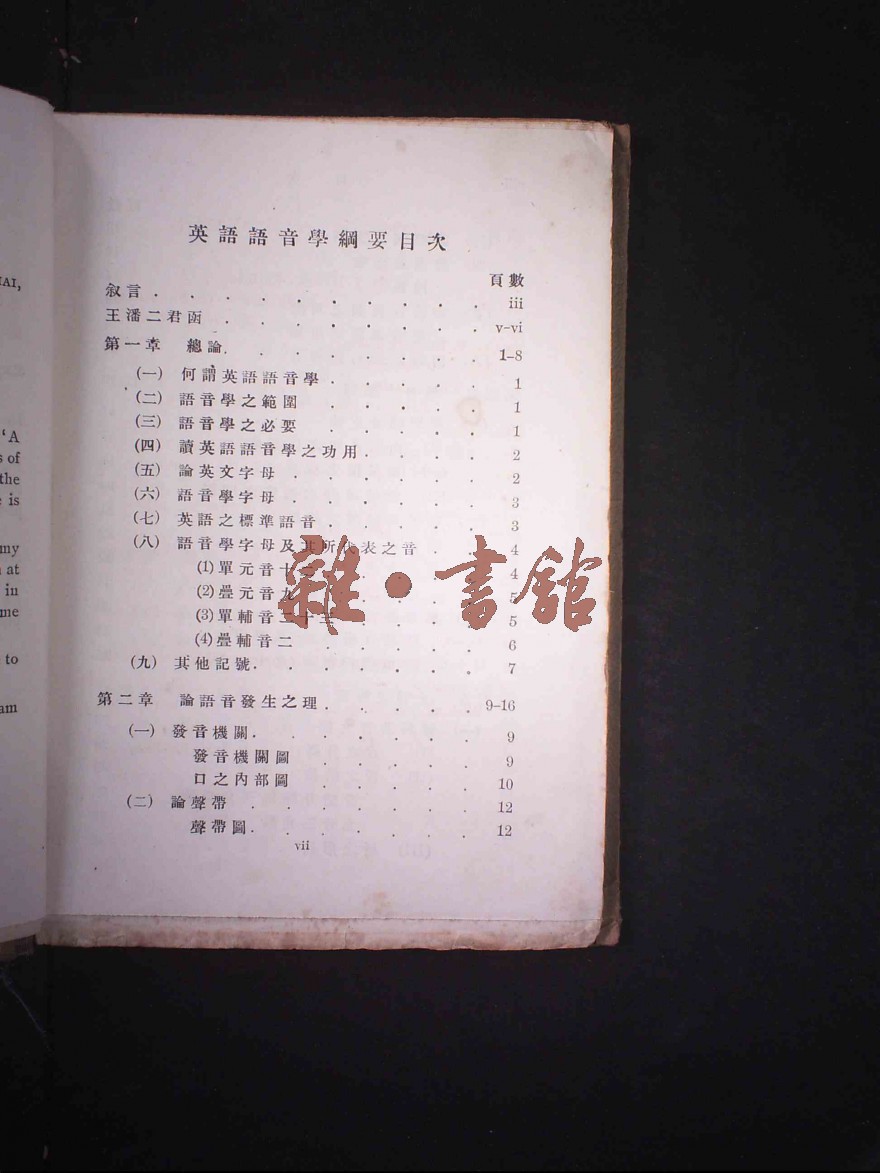 IAI,
'A
s of
the
e is
my
n at
in
me
to
am
英語語音學綱要目次
頁數
叙言 . . . . . . . . . . iii
王潘二君函 . . . . . . . . v-vi
第一章 總論 . . . . . . . . 1-8
(一) 何謂英語語音學 . . . . . 1
(二) 語音學之範圍 . . . . . 1
(三) 語音學之必要 . . . . . 1
(四) 讀英語語音學之功用 . . . . 2
(五) 論英文字母 . . . . . 2
(六) 語音學字母 . . . . . 3
(七) 英語之標準語音 . . . . . 3
(八) 語音學字母及其所代表之音 . . . 4
(1) 單元音十二 . . . . 4
(2) 疊元音九 . . . . 5
(3) 單輔音二十二 . . . . 5
(4) 疊輔音二 . . . . . 6
(九) 其他記號 . . . . . . . 7
第二章 論語音發生之理 . . . . . 9-16
(一) 發音機關 . . . . . . . 9
發音機關圖 . . . . . 9
口之內部圖 . . . . . 10
(二) 論聲帶 . . . . . . . 12
聲帶圖 . . . . . . . 12
vii
雜·書館